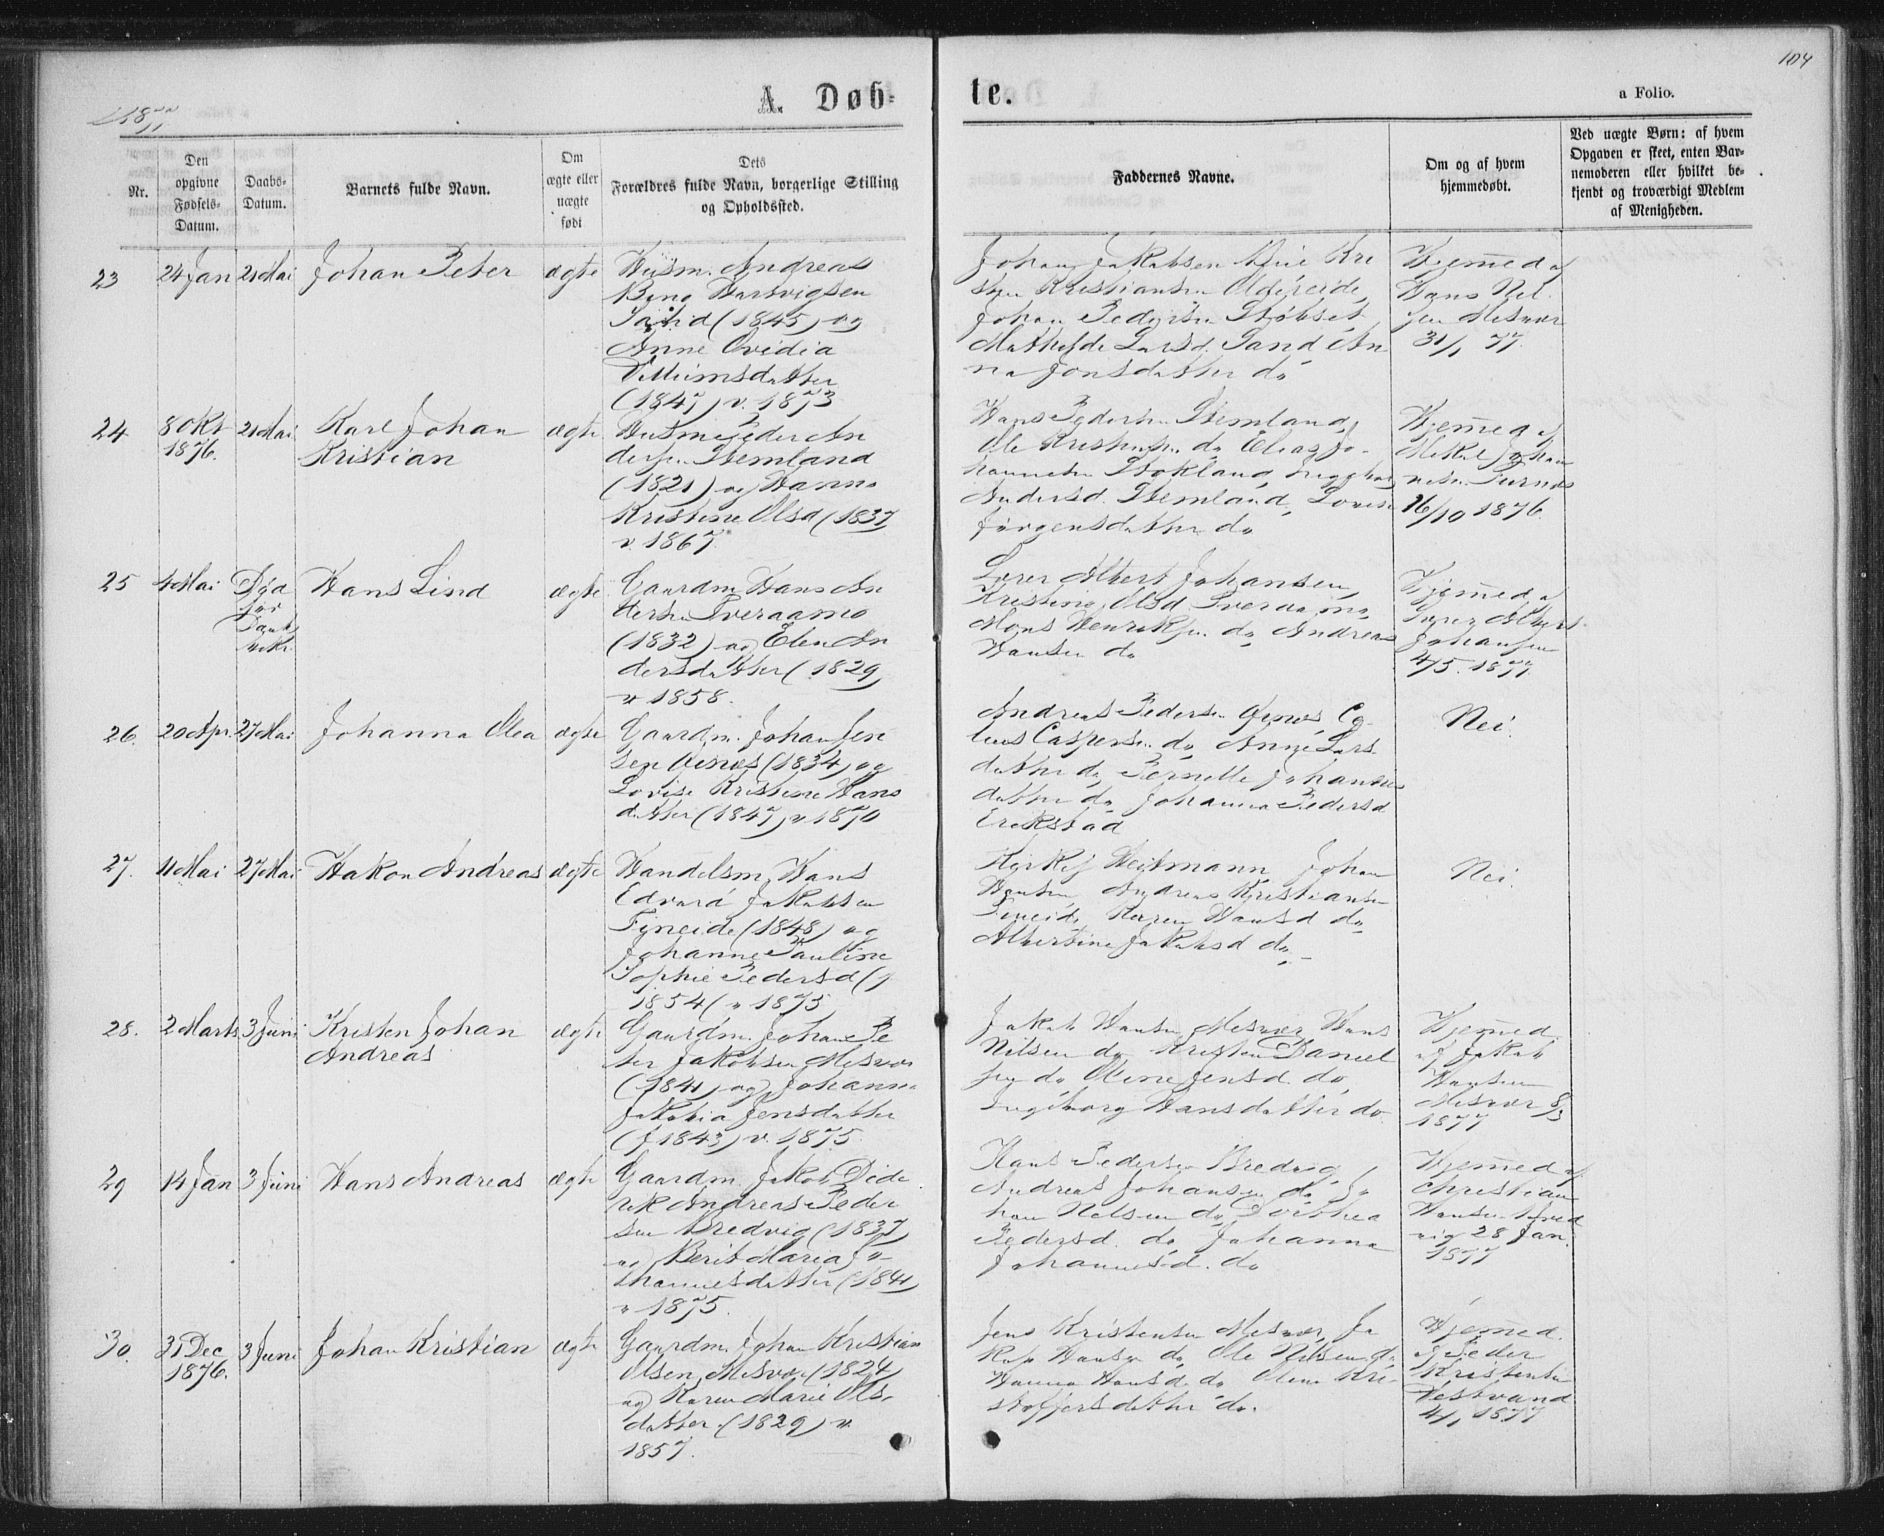 104
1877
A. Døb-
te.
a Folio.
Nr.
Den
opgivne
Fødsels-
Datum.
Daabs-
Datum.
Barnets fulde Navn.
Om
ægte eller
uægte
født
Dets
Forældres fulde Navn, borgerlige Stilling
og Opholdssted.
Faddernes Navne.
Om og af hvem
hjemmedøbt.
Ved uægte Børn: af hvem
Opgaven er skeet, enten Bar-
nemoderen eller hvilket be-
kjendt og troværdigt Medlem
af Menigheden.
23
24 Jan
21 Mai
Johan Peter
ægte
Husm. Andreas
Hartvigsen
(1845) og
Anne Ovidia
Villumsdatter
(1847) v. 1873
Johan Jakobsen
Kristiansen
Johan Pedersen
Larsd. Sand An
na Jonsdatter do
Hjemmed af
Hans Nil
sen Mesvær
31/1 77
24
8 Okt
1876.
21 Mai
Karl Johan
Kristian
ægte
Husm Peder An
dersen Stemland
(1821) og Hanna
Kristine Olsd (1837
v. 1867.
Hans Pedersen Stemland,
Ole do Elias Jo-
hannesen Stokland,
Andersd. Stemland, Lovise
Jørgensdatter do
Hjemmed af
Mikal Johan
nesen
16/10 1876.
25
4 Mai
Død
før
Hans Lind
ægte
Gaardm Hans An
dersen Sveraamo
(1832) og Elen An
dersdatter (1829
v 1858.
Lærer Albert Johansen,
Kristine Olsd Sveraamo,
Mons Henriksen do Andreas
Hansen do
Hjemmed af
Lærer Albert
Johansen
4/5. 1877.
26.
20 Apr.
27 Mai
Johanna Olea
ægte
Gaardm. Johan Jen
sen (1834) og
Lovise Kristine Hans
datter (1847) v 1870
Andreas Pedersen
Caspersen do Anne Lars
datter do Pernille Johannes
datter do Johanna Pedersd
Erikstad
Nei.
27.
11 Mai
27 Mai
Hakon Andreas
ægte
Handelsm. Hans
Edvard Jakobsen
Fineide (1848) og
Johanne Pauline
Sophie Pedersd (
1854 ( v 1875
Johan
Hansen, Andreas Kristiansen
Fineide Karen Hansd do
Albertine Jakobsd do. -
Nei.
28.
2 Marts
3 Juni
Kristen Johan
Andreas
ægte
Gaardm. Johan Pe
ter Jakobsen Mesvær
(1841) og Johanna
Jakobia Jensdatter
(f 1843) v. 1875.
Jakob Hansen Mesvær, Hans
Nilsen do Kristen Daniel
sen do Oline Jensd. do,
Ingeborg Hansdatter do
Hjemmed
af Jakob
Hansen
Mesvær 8/3
1877
29
14 Jan
3 Juni
Hans Andreas
ægte
Gaardm. Jakob Dide
rik Andreas Peder
sen Bredvig (1837
og Berit Maria Jo-
hannesdatter (1841
v 1875.
Hans Pedersen Bredvig,
Andreas Johansen do Jo
han Nilsen do Dorthea
Pedersd. do, Johanna
Johannesd. do
Hjemmed af
Christian
Hansen Bred
vig 28 Jan.
1877
30.
31 Dec
1876.
3 Juni
Johan Kristian
ægte
Gaardm. Johan Kristian
Olsen Mesvær (1824,
og Karen Marie Ols-
datter (1829) v.
1857.
Jens Kristensen Mesvær, Ja
kob Hansen do, Ole Nilsen do
Hanna Hansd. do Oline Kri-
stoffersdatter do.
Hjemmed.
af Peder
Kristensen
Vestvand
4/1 1877